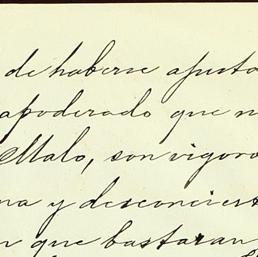 de haberse ajusta
apoderado que n
Malo, son vigoro
na y desconciert
n que bastaran